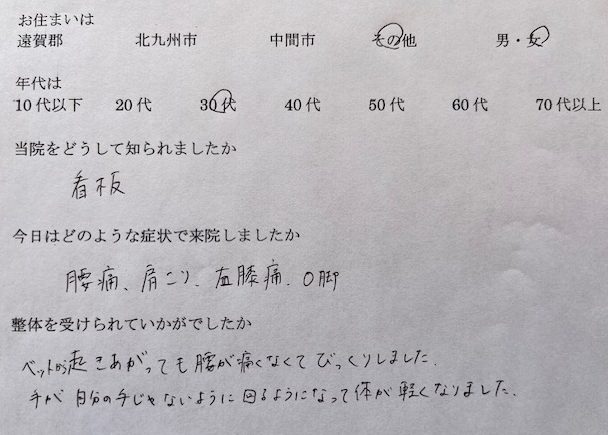 お住まいは
遠賀郡 北九州市 中間市 その他 男・女
年代は
10代以下 20代 30代 40代 50代 60代 70代以上
当院をどうして知られましたか
看板
今日はどのような症状で来院しましたか
腰痛、肩こり、右膝痛、O脚
整体を受けられていかがでしたか
ベットから起きあがっても腰が痛くなくてびっくりしました.
手が自分の手じゃないように回るようになって体が軽くなりました.